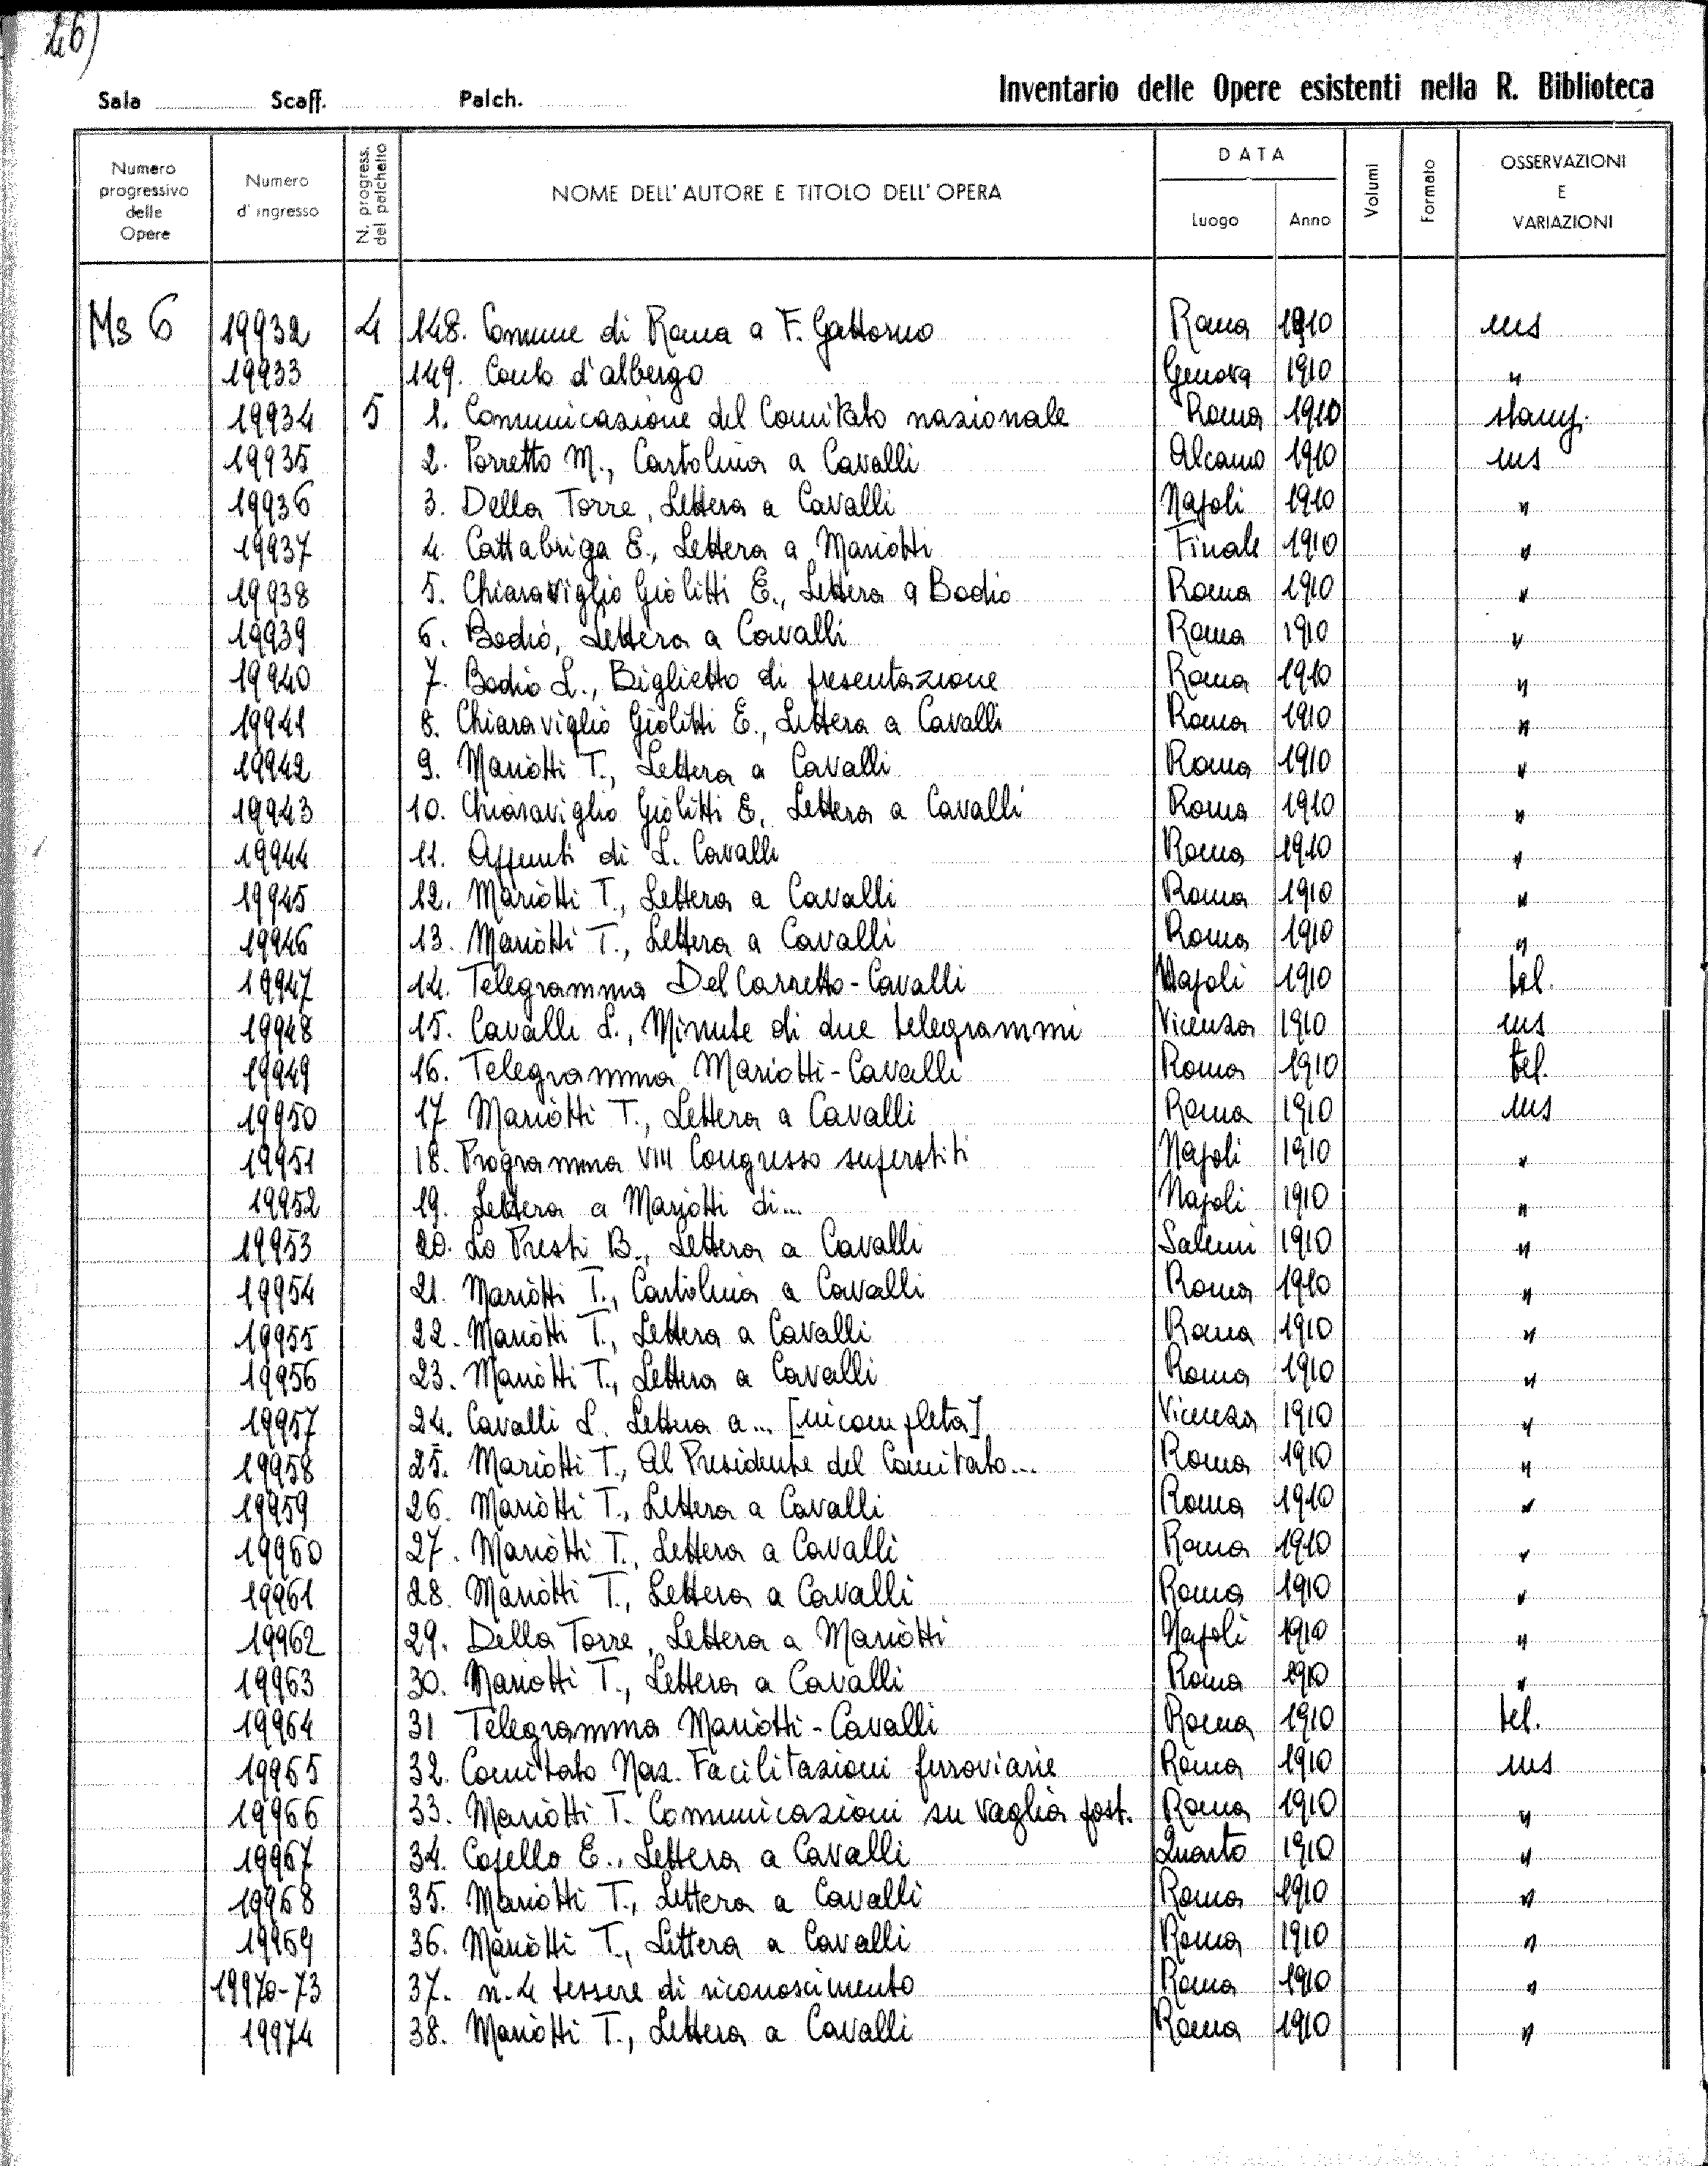 26)
Sala Scaff. Palch. Inventario delle Opere esistenti nella R. Biblioteca
Numero progressivo delle Opere Numero d'ingresso N. progress. del palchetto NOME DELL' AUTORE E TITOLO DELL' OPERA DATA Luogo Anno Volumi Formato OSSERVAZIONI E VARIAZIONI
Ms 6 19932 4 148. Comune di Roma a F. Gattorno Roma 1910 ms
19933 149. Conto d'albergo Genova 1910 "
19934 5 1. Comunicazione del Comitato nazionale Roma 1910 stamp.
19935 2. Porretto M., Cartolina a Cavalli Alcamo 1910 ms
19936 3. Della Torre, Lettera a Cavalli Napoli 1910 "
19937 4. Cattabriga E., Lettera a Mariotti Finale 1910 "
19938 5. Chiaraviglio Giolitti E., Lettera a Bodio Roma 1910 "
19939 6. Bodio, Lettera a Cavalli Roma 1910 "
19940 7. Bodio L., Biglietto di presentazione Roma 1910 "
19941 8. Chiaraviglio Giolitti E., Lettera a Cavalli Roma 1910 "
19942 9. Mariotti T., Lettera a Cavalli Roma 1910 "
19943 10. Chiaraviglio Giolitti E, Lettera a Cavalli Roma 1910 "
19944 11. Appunti di L. Cavalli Roma 1910 "
19945 12. Mariotti T., Lettera a Cavalli Roma 1910 "
19946 13. Mariotti T., Lettera a Cavalli Roma 1910 "
19947 14. Telegramma Del Carretto-Cavalli Napoli 1910 tel.
19948 15. Cavalli L., Minute di due telegrammi Vicenza 1910 ms
19949 16. Telegramma Mariotti-Cavalli Roma 1910 tel.
19950 17 Mariotti T., Lettera a Cavalli Roma 1910 ms
19951 18. Programma VIII Congresso superstiti Napoli 1910 "
19952 19. Lettera a Mariotti di... Napoli 1910 "
19953 20. Lo Presti B., Lettera a Cavalli Salemi 1910 "
19954 21. Mariotti T., Cartolina a Cavalli Roma 1910 "
19955 22. Mariotti T., Lettera a Cavalli Roma 1910 "
19956 23. Mariotti T., Lettera a Cavalli Roma 1910 "
19957 24. Cavalli L. Lettera a... [incompleta] Vicenza 1910 "
19958 25. Mariotti T., Al Presidente del Comitato... Roma 1910 "
19959 26. Mariotti T., Lettera a Cavalli Roma 1910 "
19960 27. Mariotti T., Lettera a Cavalli Roma 1910 "
19961 28. Mariotti T., Lettera a Cavalli Roma 1910 "
19962 29. Della Torre, Lettera a Mariotti Napoli 1910 "
19963 30. Mariotti T., Lettera a Cavalli Roma 1910 "
19964 31 Telegramma Mariotti-Cavalli Roma 1910 tel.
19965 32. Comitato Naz. Facilitazioni ferroviarie Roma 1910 ms
19966 33. Mariotti T. Comunicazioni su vaglia post. Roma 1910 "
19967 34. Copello E., Lettera a Cavalli Quarto 1910 "
19968 35. Mariotti T., Lettera a Cavalli Roma 1910 "
19969 36. Mariotti T., Lettera a Cavalli Roma 1910 "
19970-73 37. n. 4 tessere di riconoscimento Roma 1910 "
19974 38. Mariotti T., Lettera a Cavalli Roma 1910 "